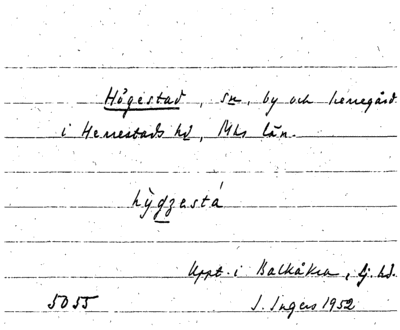 Högestad, sn, by och herregård
i Herrestads hd, Mhs län.
hỳgzestá
Uppt. i Balkåkra, Lj. hd.
5055 J. Ingers 1952